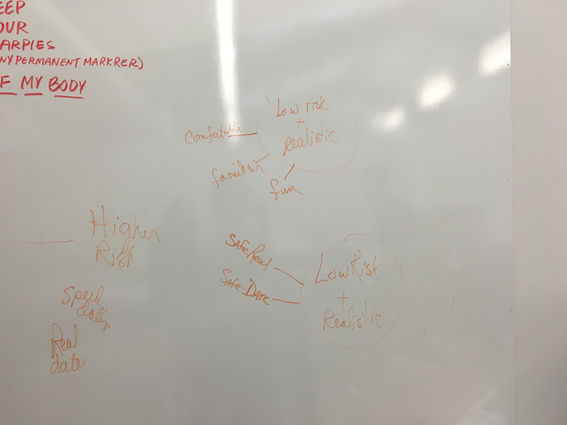 EEP
OUR
ARPIES
NY PERMANENT MARKRER)
F MY BODY
Low risk
+
realistic
Comfortable
familiar
fun
Higher
Risk
Speed
dating
Real
date
Safe Read
Safe-DATE
Low Risk
+
Realistic